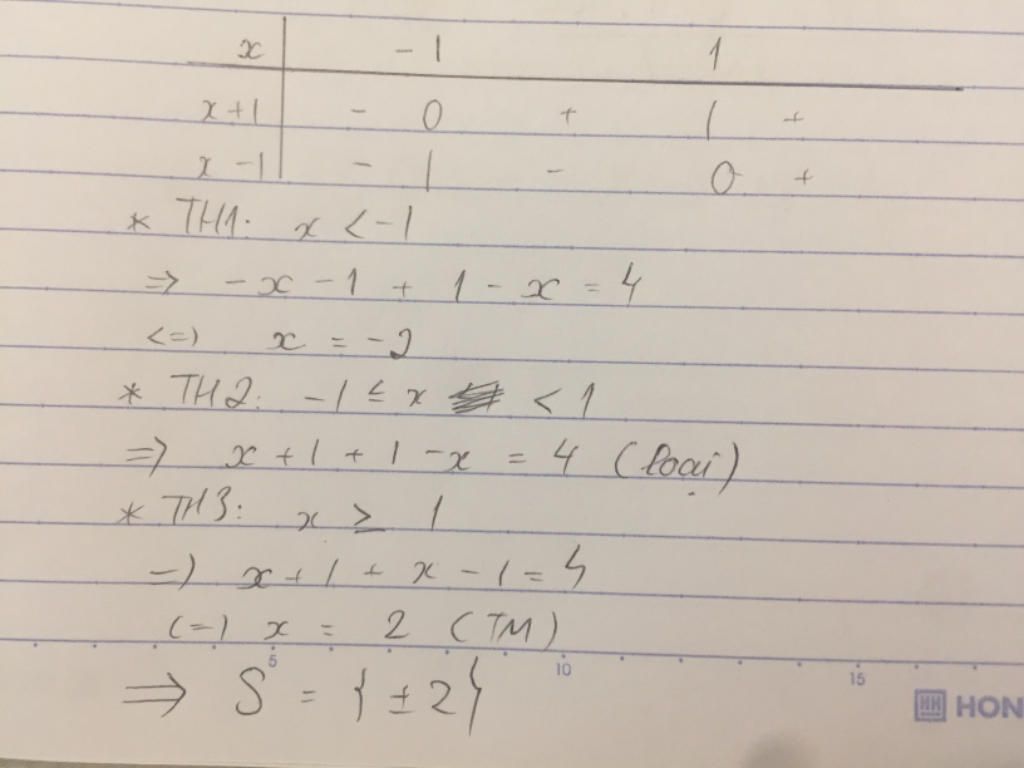 x | -1 1
x+1 | - 0 + | +
x-1 | - | - 0 +
* TH1: x < -1
=> -x -1 + 1 - x = 4
<=> x = -2
* TH2: -1 ≤ x < 1
=> x + 1 + 1 - x = 4 (loại)
* TH3: x ≥ 1
=) x + 1 + x - 1 = 4
(=) x = 2 (TM)
5 10 15
=> S = {±2}
HON